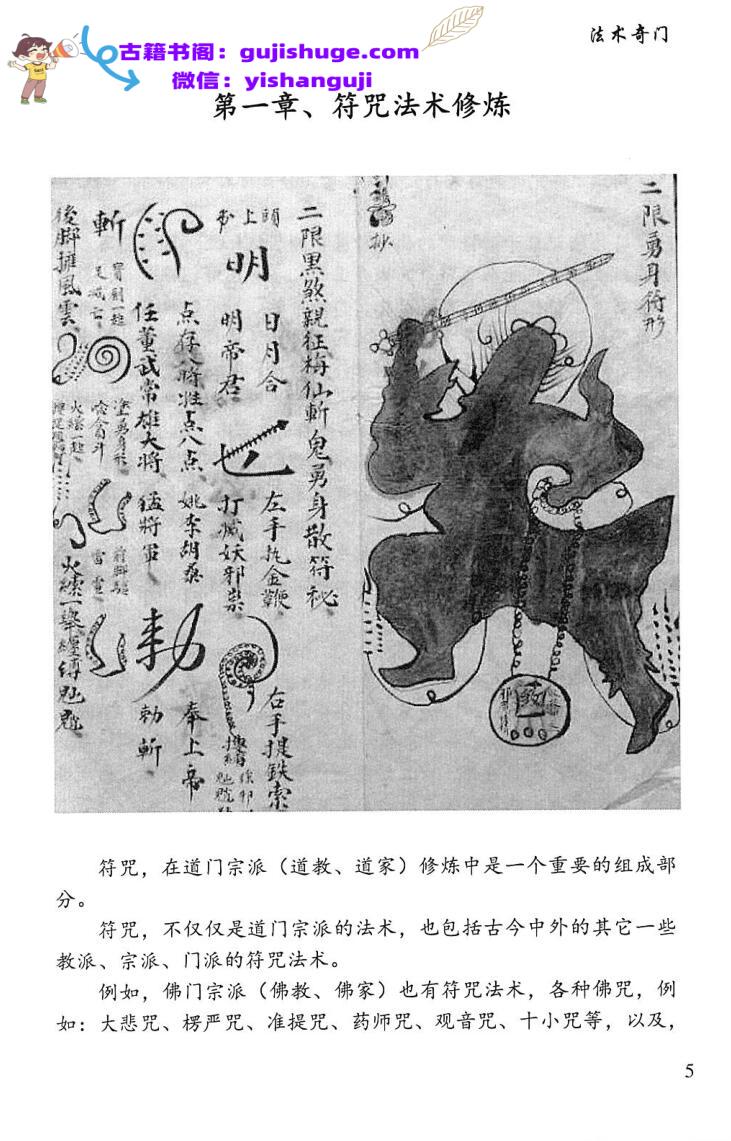 古籍书阁：gujishuge.com
微信：yishanguji
法术奇门
第一章、符咒法术修炼
二限勇身符形
二限黑煞親征梅仙斬鬼勇身散符秘
日月合
左手执金鞭
右手提鉄索
明
明帝君
打滅妖邪祟
点存八將姓点八点
姚李胡蔡
奉上帝
任董武常雄大將
猛將軍
勅
勅斬
斬
後腳擁風雲
符咒，在道门宗派（道教、道家）修炼中是一个重要的组成部
分。
符咒，不仅仅是道门宗派的法术，也包括古今中外的其它一些
教派、宗派、门派的符咒法术。
例如，佛门宗派（佛教、佛家）也有符咒法术，各种佛咒，例
如：大悲咒、楞严咒、准提咒、药师咒、观音咒、十小咒等，以及，
5